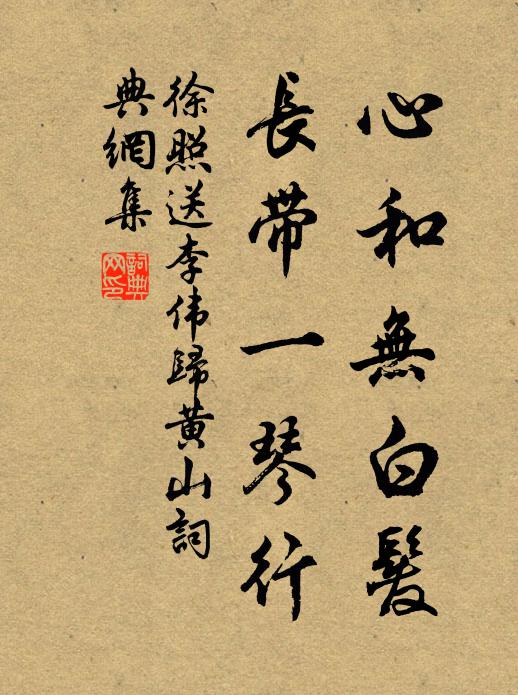 心和無白髮
長帶一琴行
徐照送李伟歸黃山詞
典網集
詞典網印